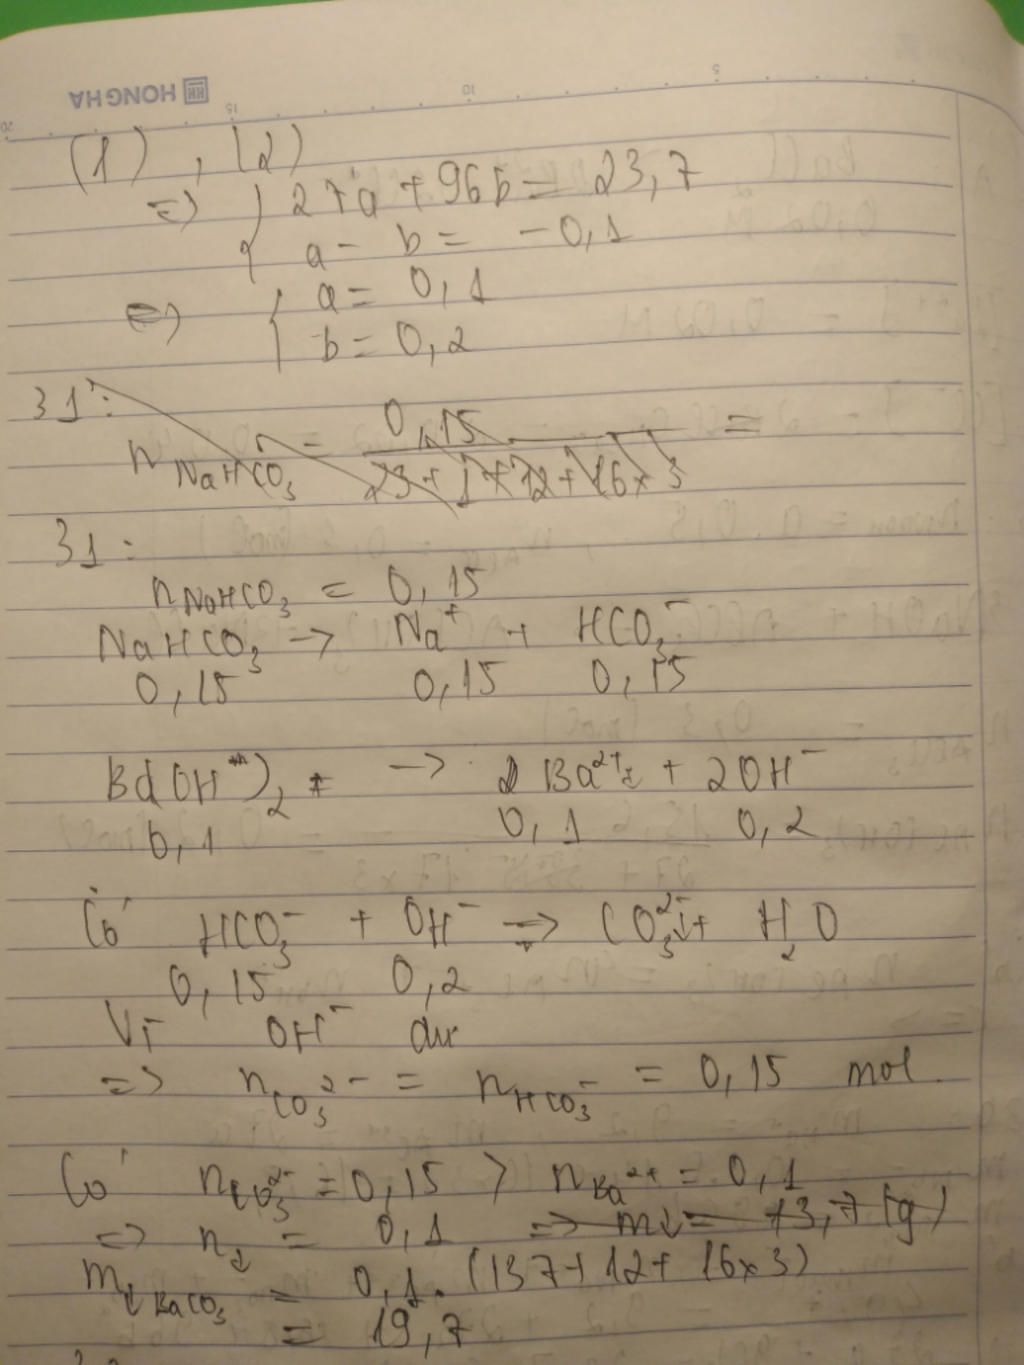 HONG HA
5
10
15
20
(1) , (2)
=> { 27a + 96b = 23,7
a - b = -0,1
<=> { a = 0,1
b = 0,2
31:
n NaHCO3 = 0,15 / 23+1+12+16x3 =
31:
nNaHCO3 = 0,15
NaHCO3 -> Na+ + HCO3-
0,15 0,15 0,15
Ba(OH)2 -> Ba2+ + 2OH-
0,1 0,1 0,2
Có HCO3- + OH- => CO3 2- + H2O
0,15 0,2
Vì OH- dư
=> nCO3 2- = nHCO3- = 0,15 mol.
Có nCO3 2- = 0,15 > nBa2+ = 0,1
=> n↓ = 0,1 => m↓ = 13,7 (g)
m↓BaCO3 = 0,1.(137+12+16x3)
= 19,7